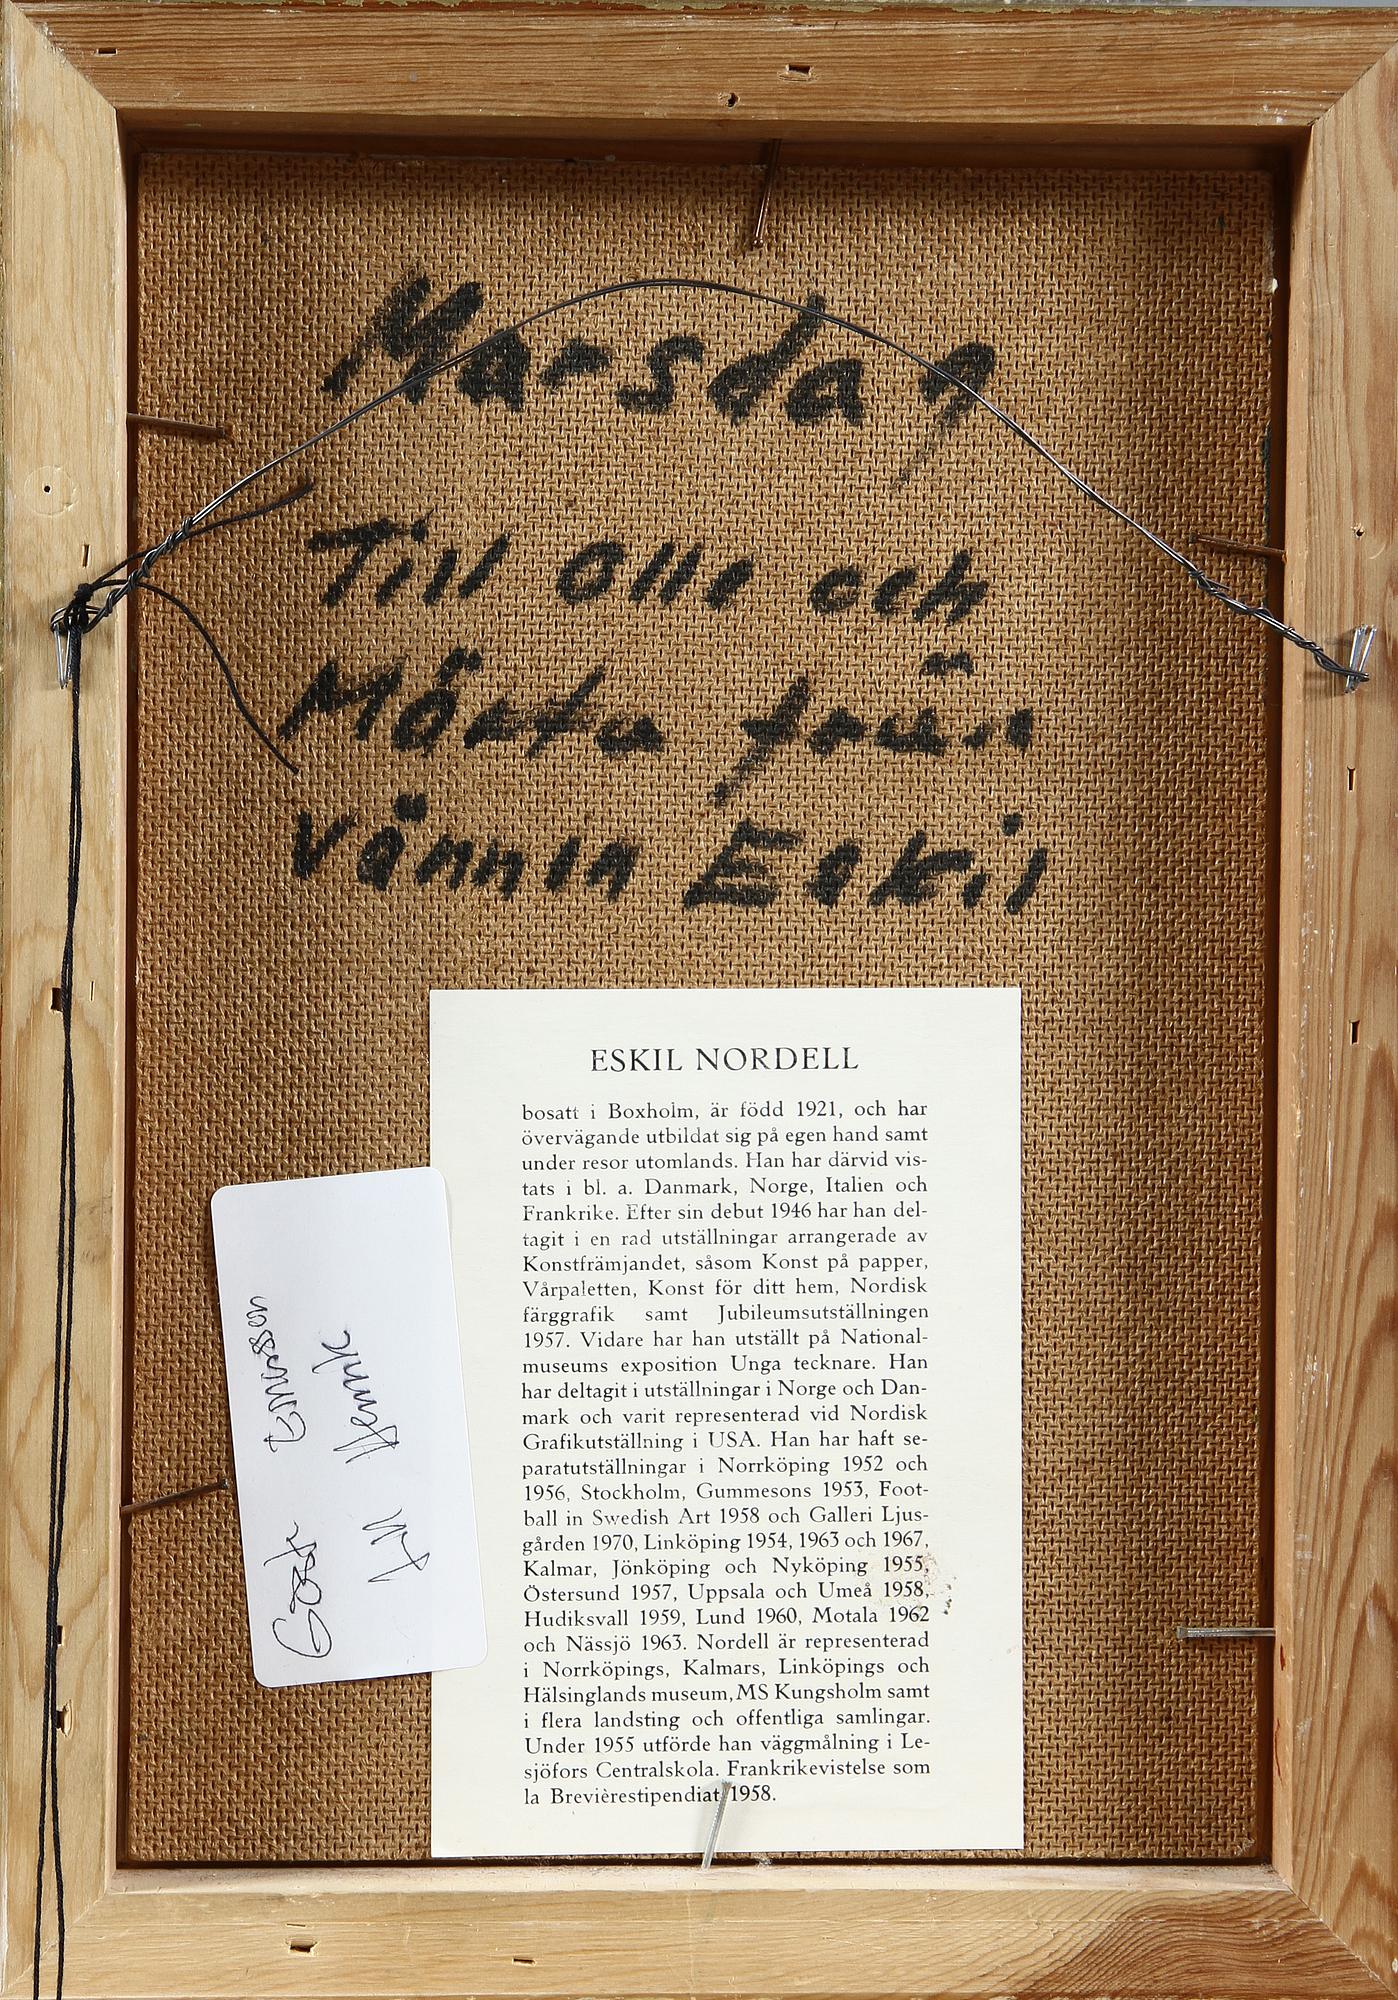 Marsdag
Till Olle och
Märta från
vännen Eskil
ESKIL NORDELL
bosatt i Boxholm, är född 1921, och har
övervägande utbildat sig på egen hand samt
under resor utomlands. Han har därvid vis-
tats i bl. a. Danmark, Norge, Italien och
Frankrike. Efter sin debut 1946 har han del-
tagit i en rad utställningar arrangerade av
Konstfrämjandet, såsom Konst på papper,
Vårpaletten, Konst för ditt hem, Nordisk
färggrafik samt Jubileumsutställningen
1957. Vidare har han utställt på National-
museums exposition Unga tecknare. Han
har deltagit i utställningar i Norge och Dan-
mark och varit representerad vid Nordisk
Grafikutställning i USA. Han har haft se-
paratutställningar i Norrköping 1952 och
1956, Stockholm, Gummesons 1953, Foot-
ball in Swedish Art 1958 och Galleri Ljus-
gården 1970, Linköping 1954, 1963 och 1967,
Kalmar, Jönköping och Nyköping 1955,
Östersund 1957, Uppsala och Umeå 1958,
Hudiksvall 1959, Lund 1960, Motala 1962
och Nässjö 1963. Nordell är representerad
i Norrköpings, Kalmars, Linköpings och
Hälsinglands museum, MS Kungsholm samt
i flera landsting och offentliga samlingar.
Under 1955 utförde han väggmålning i Le-
sjöfors Centralskola. Frankrikevistelse som
la Brevièrestipendiat 1958.